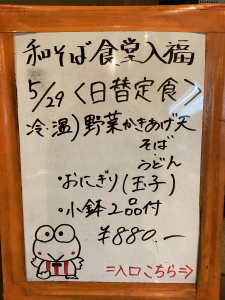 和そば食堂入福
5/29 〈日替定食〉
冷・温)野菜かきあげ天
そば
うどん
・おにぎり(玉子)
・小鉢2品付
¥880.ー
⇒入口こちら⇒